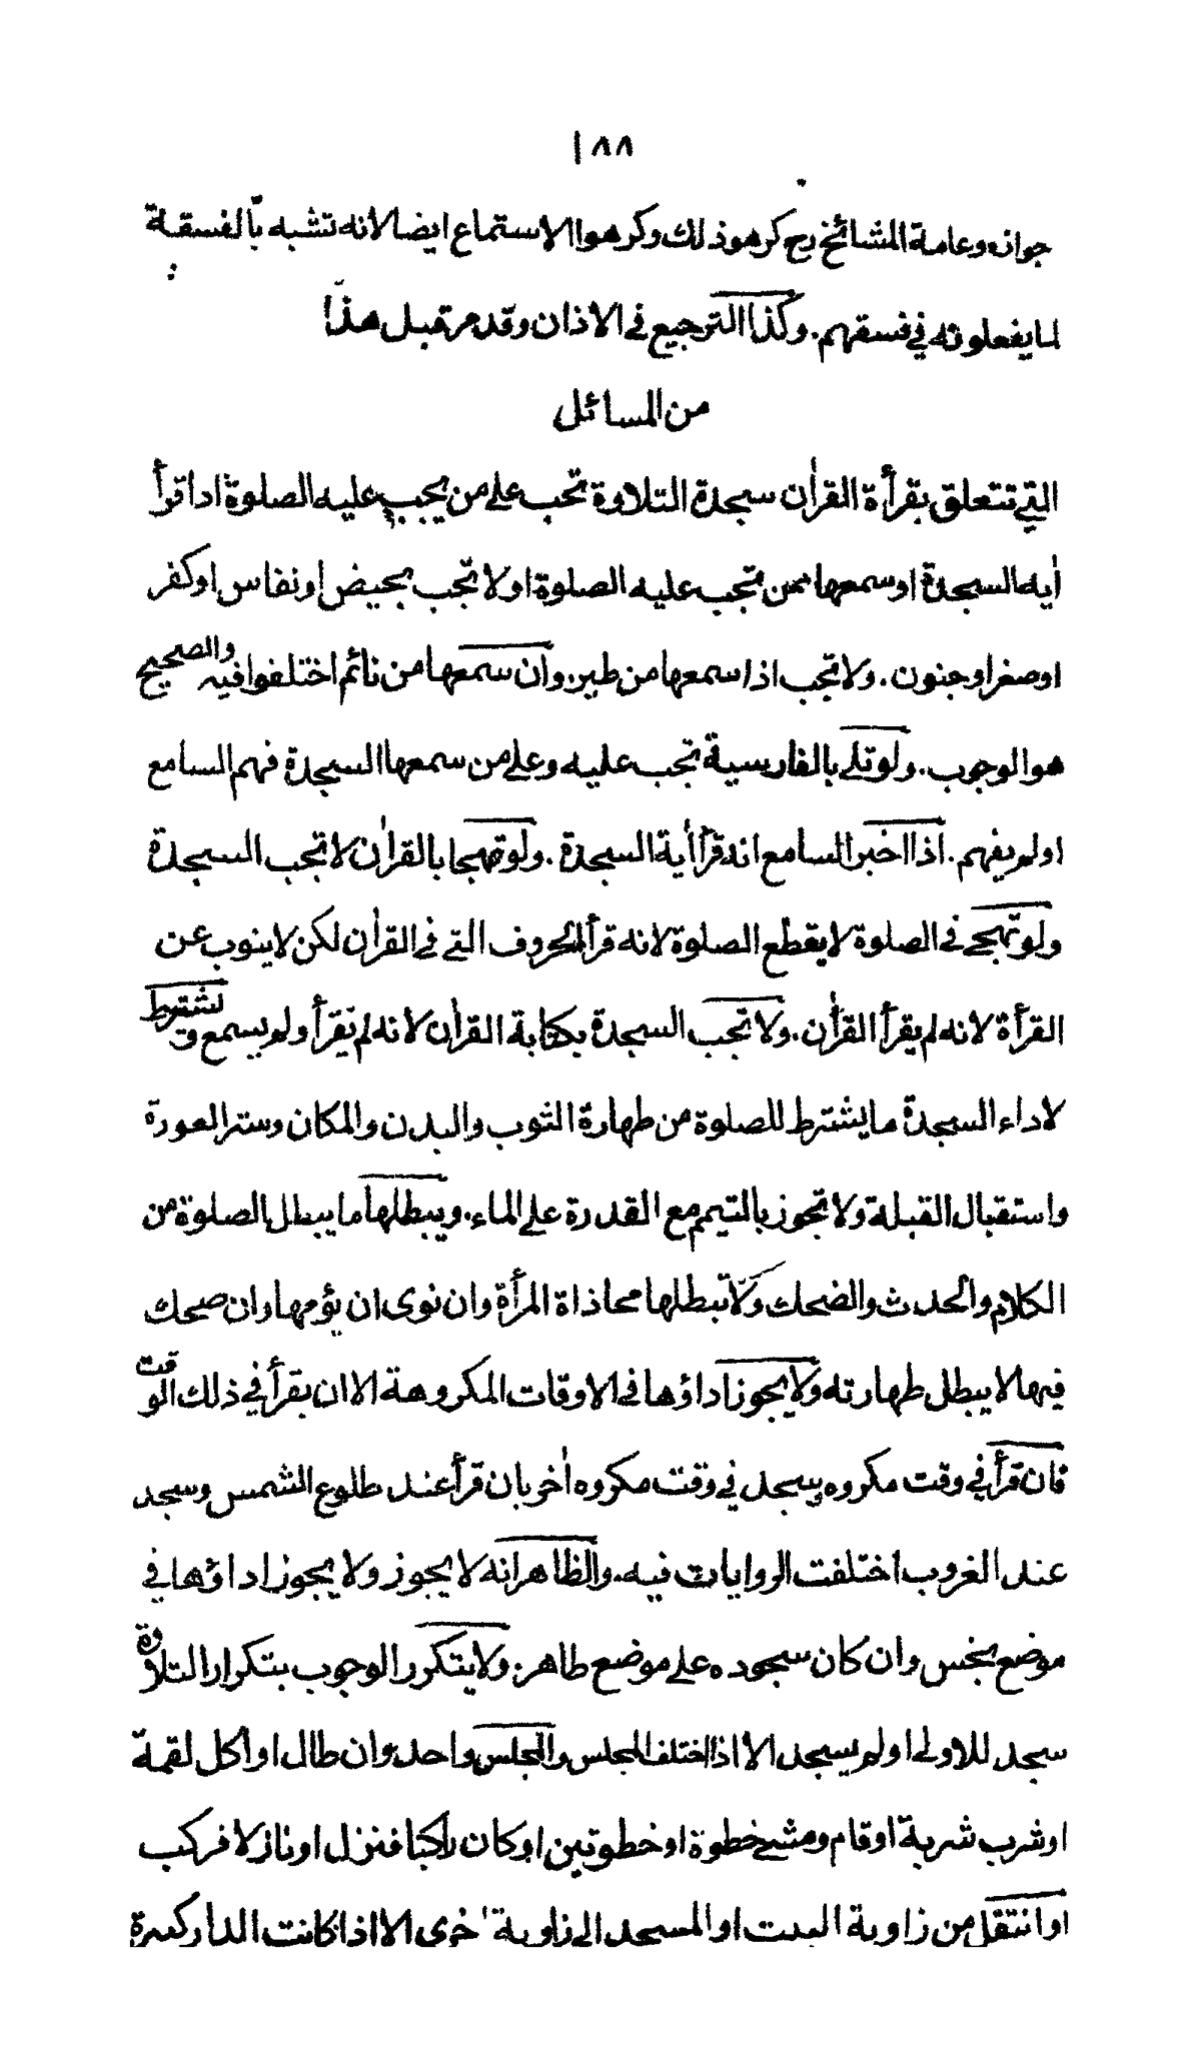 ١٨٨
جوازه وعامة المشائخ رح كرهوذلك وكرهوا الاستماع ايضا لانه تشبه بالفسقة
لما يفعلونه في فسقهم. وكذا الترجيع في الاذان وقد مر قبل هذا
من المسائل
التي تتعلق بقرأة القرأن سجدة التلاوة تجب على من يجب عليه الصلوة اذا قرأ
أية السجدة او سمعها ممن تجب عليه الصلوة او لا تجب بحيض او نفاس او كفر
او صغر او جنون. ولا تجب اذا سمعها من طير. وان سمعها من نائم اختلفوا فيه والصحيح
هو الوجوب. ولو تلى بالفارسية تجب عليه وعلى من سمعها السجدة فهم السامع
او لم يفهم. اذا اخبر السامع انه قرأ أية السجدة. ولو تهجا بالقرأن لا تجب السجدة
ولو تهجى في الصلوة لا يقطع الصلوة لانه قرأ الحروف التي في القرأن لكن لا ينوب عن
القرأة لانه لم يقرأ القرأن. ولا تجب السجدة بكتابة القرأن لانه لم يقرأ ولم يسمع وتشترط
لاداء السجدة ما يشترط للصلوة من طهارة الثوب والبدن والمكان وستر العورة
واستقبال القبلة ولا تجوز بالتيمم مع القدرة على الماء. ويبطلها ما يبطل الصلوة من
الكلام والحدث والضحك ولا تبطلها محاذاة المرأة وان نوى ان يؤمها وان ضحك
فيها لا يبطل طهارته ولا يجوز اداؤها في الاوقات المكروهة الا ان يقرأ في ذلك الوقت
فان قرأ في وقت مكروه يسجد في وقت مكروه أخر بان قرأ عند طلوع الشمس وسجد
عند الغروب اختلفت الروايات فيه. والظاهر انه لا يجوز ولا يجوز اداؤها في
موضع نجس وان كان سجوده على موضع طاهر. ولا يتكرر الوجوب بتكرار التلاوة
سجد للاولى او لم يسجد الا اذا اختلف المجلس والمجلس واحد وان طال او اكل لقمة
او شرب شربة او قام ومشى خطوة او خطوتين او كان راكبا فنزل او نازلا فركب
او انتقل من زاوية البيت او المسجد الى زاوية اخرى الا اذا كانت الدار كبيرة